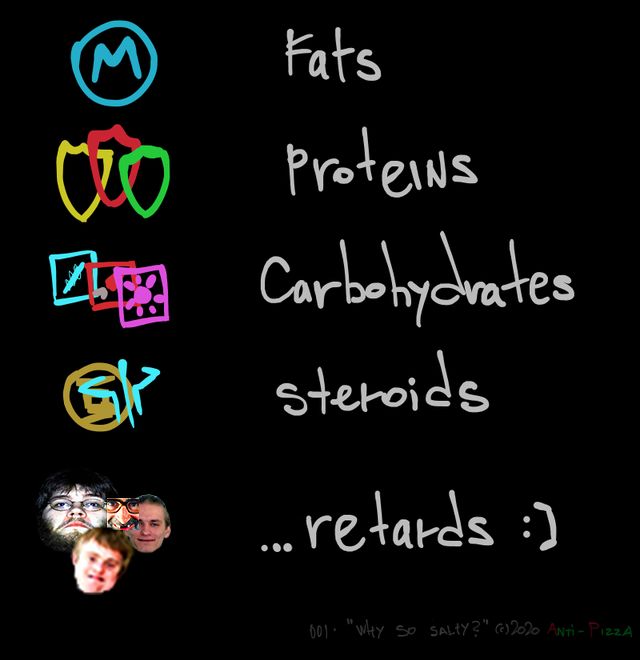 M
Fats
Proteins
Carbohydrates
steroids
...retards :]
001. "WHY SO SALTY?" (c)2020 ANTI-PIZZA